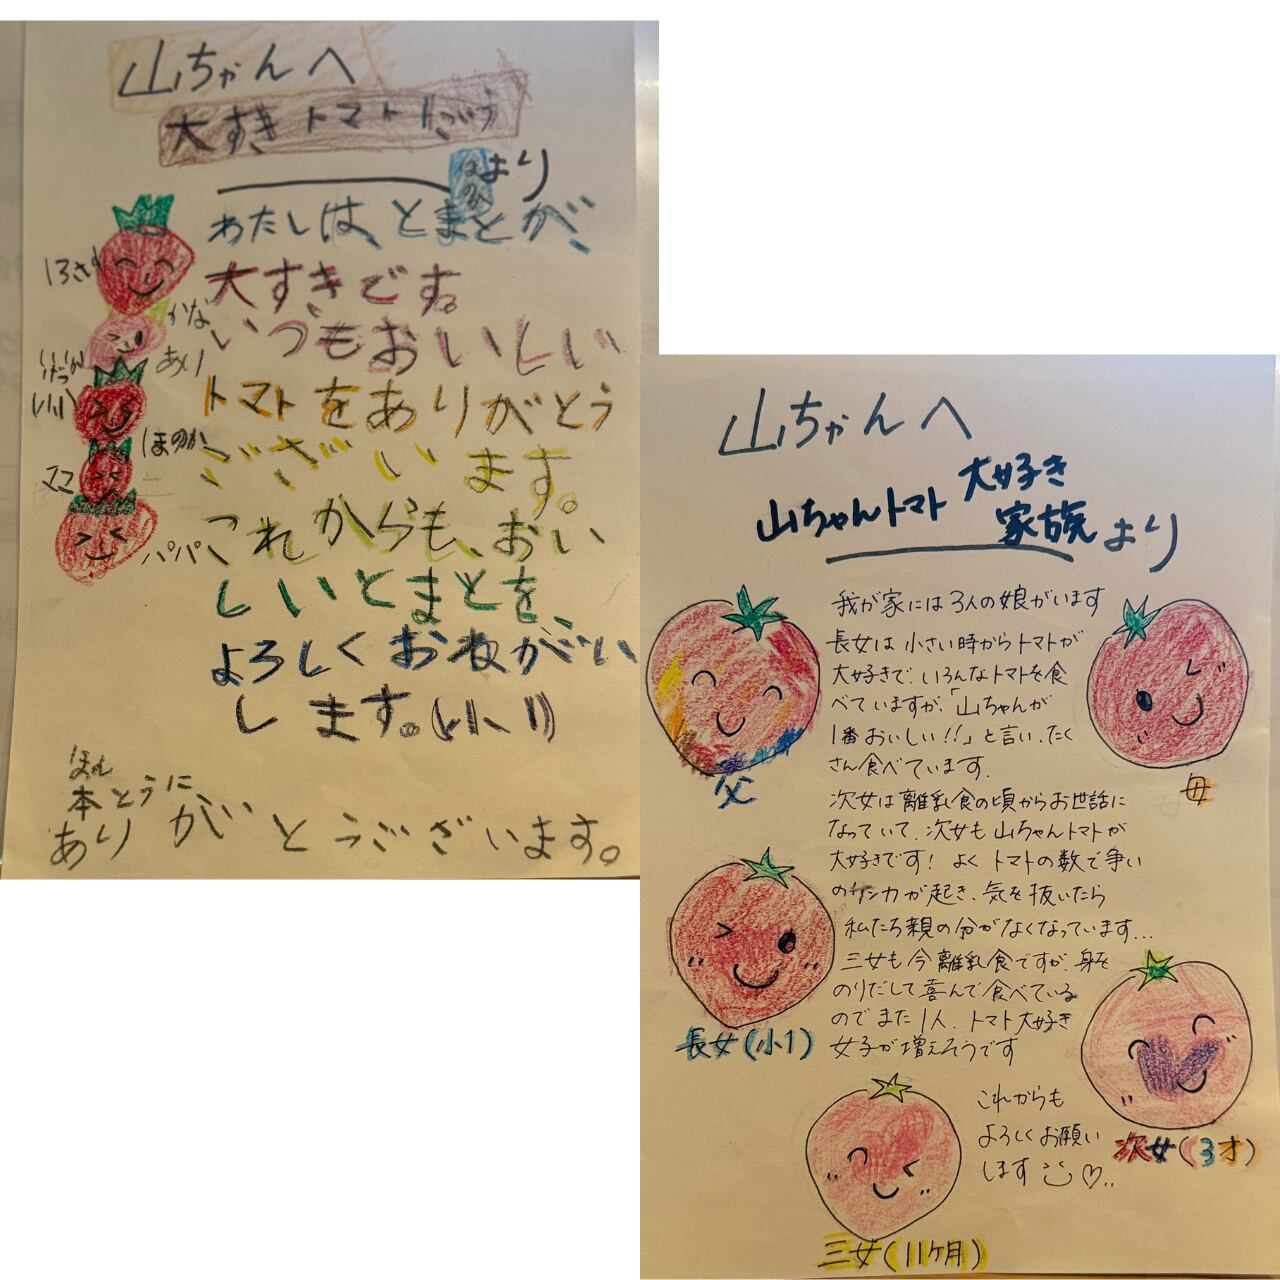 山ちゃんへ
大すきトマト
ほのか
より
わたしは、とまとが、
大すきです。
いつもおいしい
トマトをありがとう
ございます。
これからも、おい
しいとまとを、
よろしくおねがい
します。(小1)
3さい
かな
あり
ほのか
ママ
パパ
ほん
本とうに、
ありがとうございます。
山ちゃんへ
山ちゃんトマト大好き
家族より
我が家には3人の娘がいます
長女は小さい時からトマトが
大好きで、いろんなトマトを食
べていますが、「山ちゃんが
1番おいしい!!」と言い、たく
さん食べています。
次女は離乳食の頃からお世話に
なっていて、次女も山ちゃんトマトが
大好きです! よくトマトの数で争い
のケンカが起き、気を抜いたら
私たち親の分がなくなっています...
三女も今離乳食ですが、身を
のりだして喜んで食べている
のでまた1人、トマト大好き
女子が増えそうです
これからも
よろしくお願い
します
父
母
長女(小1)
次女(3才)
三女(11ヶ月)